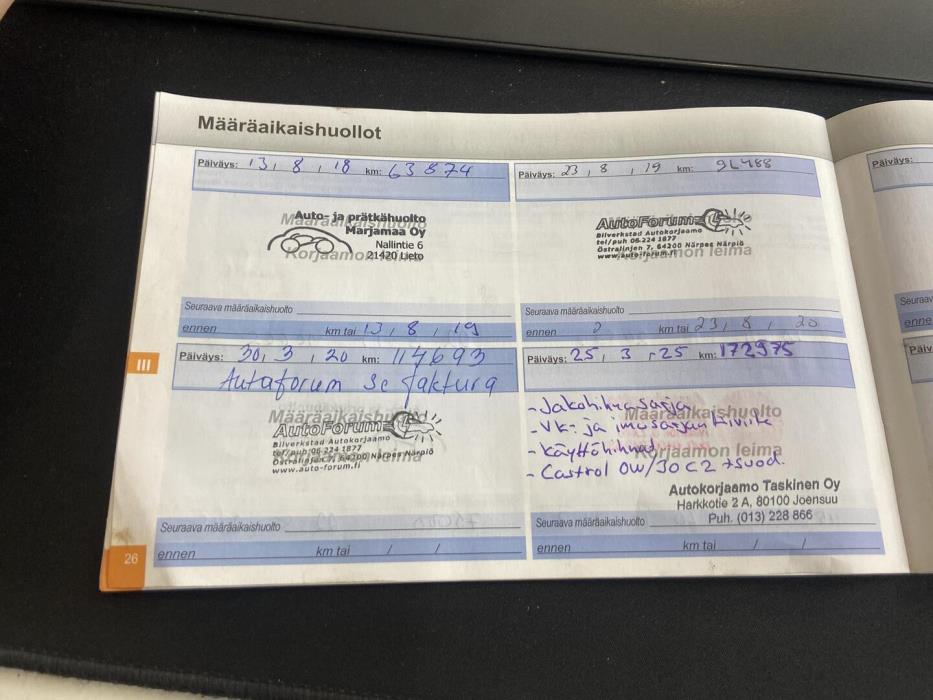 Määräaikaishuollot
Päiväys: 13, 8, 18 km: 63874
Auto- ja prätkähuolto
Marjamaa Oy
Nallintie 6
21420 Lieto
Määräaikaishuolto
Korjaamon leima
Seuraava määräaikaishuolto
ennen km tai 13, 8, 19
Päiväys: 23, 8, 19 km:
AutoForum
Bilverkstad Autokorjaamo
tel/puh 06-224 1877
Östralinjen 7, 64200 Närpes Närpiö
www.auto-forum.fi
Korjaamon leima
Seuraava määräaikaishuolto
ennen km tai 23, 8, 20
III
Päiväys: 30, 3, 20 km: 114693
Autaforum se faktura
Määräaikaishuolto
AutoForum
Bilverkstad Autokorjaamo
tel/puh 06-224 1877
Östralinjen 7, 64200 Närpes Närpiö
www.auto-forum.fi
Korjaamon leima
Seuraava määräaikaishuolto
ennen km tai / /
Päiväys: 25, 3, -25 km: 172975
- Jakohihnasarja
- VK- ja imusarjan tiiviste
- Käyttöhihnat
- Castrol 0W/30 C2 +suod.
Määräaikaishuolto
Korjaamon leima
Autokorjaamo Taskinen Oy
Harkkotie 2 A, 80100 Joensuu
Puh. (013) 228 866
Seuraava määräaikaishuolto
ennen km tai / /
26
Päiväys:
Seuraav
enne
Päiv